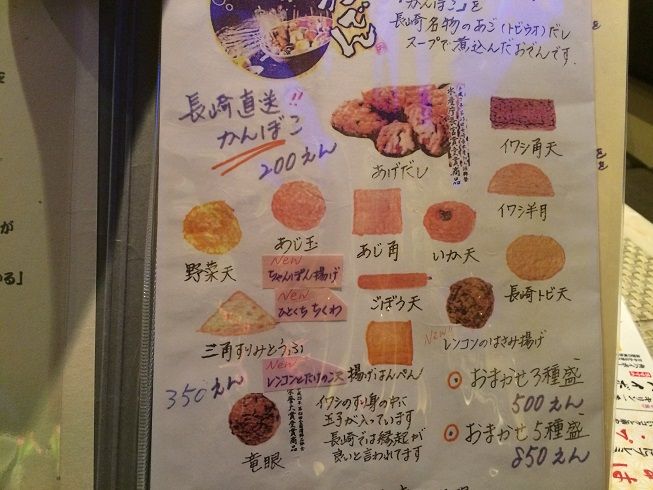 「かんぼこ」を
長崎名物のあご(トビウオ)だし
スープで煮込んだおでんです。
長崎直送!!
かんぼこ
200えん
あげだし
イワシ角天
イワシ半月
野菜天
あじ玉
あじ角
いか天
長崎トビ天
New
ちゃんぽん揚げ
New
ひとくちちくわ
ごぼう天
三角すりみとうふ
New!!
レンコンのはさみ揚げ
New
レンコンとたけのこ天
揚げはんぺん
350えん
竜眼
イワシのすり身の中に
玉子が入っています
長崎では縁起が
良いと言われてます
おまかせ3種盛
500えん
おまかせ5種盛
850えん